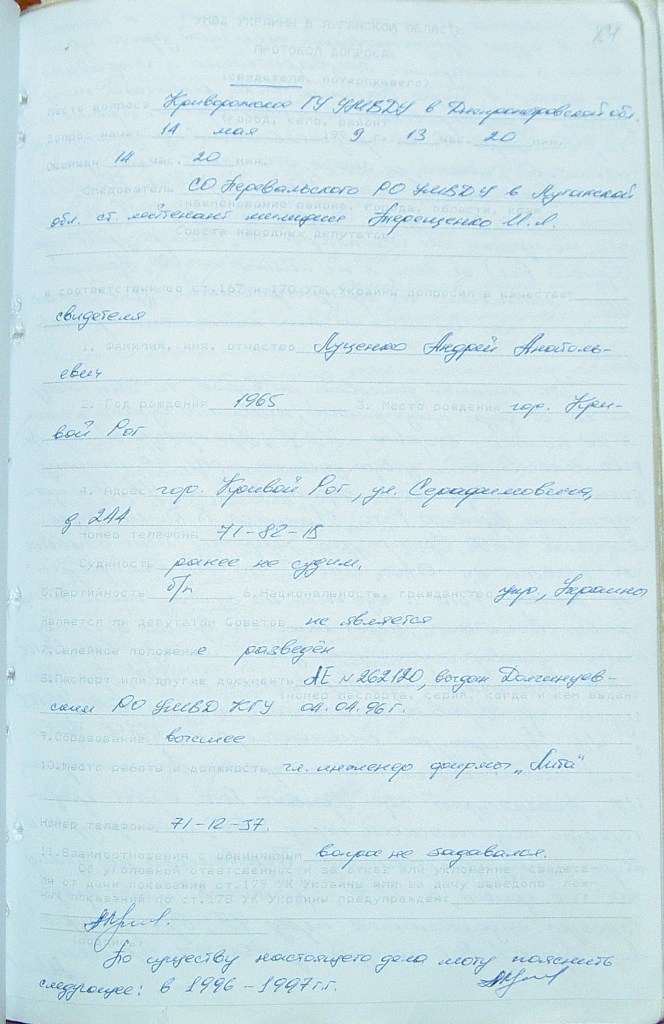 УМВД УКРАИНЫ В ЛУГАНСКОЙ ОБЛАСТИ
ПРОТОКОЛ ДОПРОСА
(свидетеля, потерпевшего)
Место допроса Криворожское ГУ УМВДУ в Днепропетровской обл.
(город, село, район)
Допрос начат 14 мая 199 9 г. 13 час. 20 мин.
Окончен 14 час. 20 мин.
Следователь СО Перевальского РО УМВДУ в Луганской
обл. ст. лейтенант милиции Терещенко И.А.
Совета народных депутатов
в соответствии со ст.167 и 170 УПК Украины допросил в качестве
свидетеля
1. Фамилия, имя, отчество Луценко Андрей Анатоль-
евич
2. Год рождения 1965 3. Место рождения гор. Кри-
вой Рог
4. Адрес гор. Кривой Рог, ул. Серафимовича,
д. 244
Номер телефона 71-82-15
Судимость ранее не судим.
5.Партийность б/п 6.Национальность, гражданство укр., Украины
Является ли депутатом Советов не является
7.Семейное положение разведён
8.Паспорт или другие документы АЕ №262120, выдан Долгинцев-
(номер паспорта, серия, когда и кем выдан)
ским РО УМВД КГУ 04.04.96г.
9.Образование высшее
10.Место работы и должность гл. инженер фирмы „Лита"
Номер телефона 71-12-37.
11.Взаимоотношения с обвиняемым вопрос не задавался.
Об уголовной ответственности за отказ или уклонение свидете-
ля от дачи показаний ст.179 УК Украины или за дачу заведомо лож-
ных показаний по ст.178 УК Украины предупрежден:
(подпись)
По существу настоящего дела могу пояснить
следующее: в 1996 – 1997г.г.